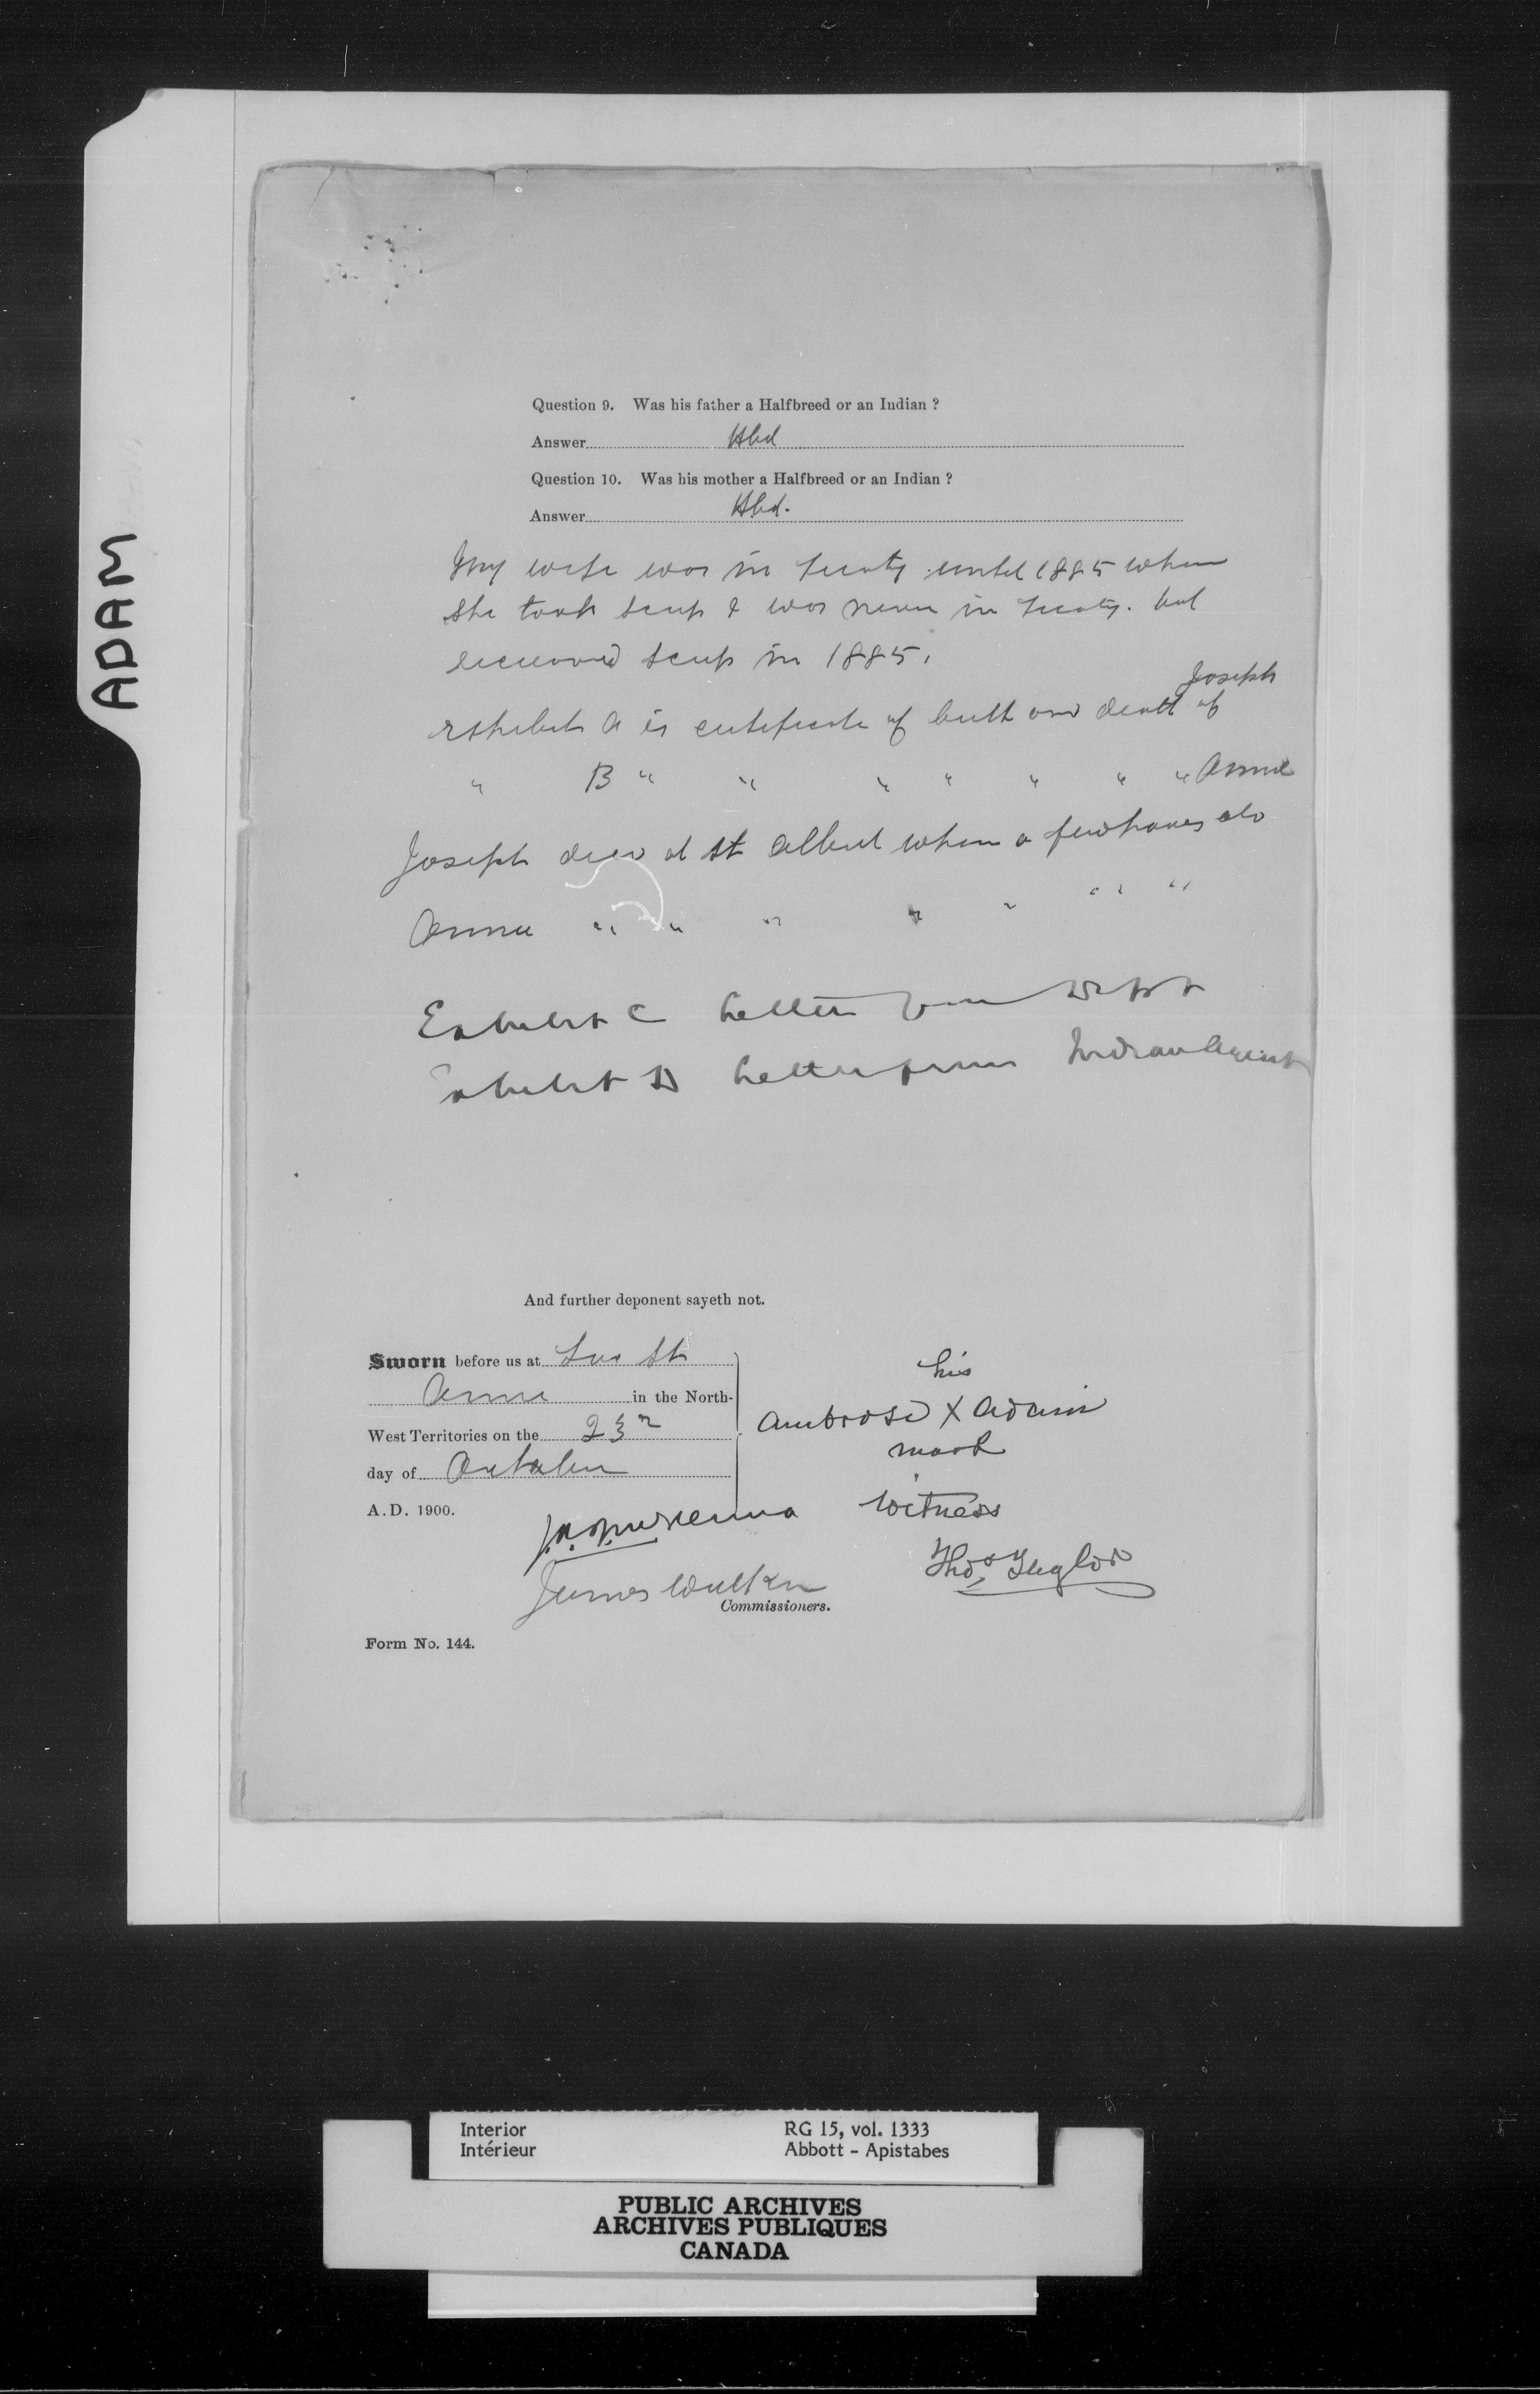 ADAM
Question 9. Was his father a Halfbreed or an Indian ?
Answer Hbd
Question 10. Was his mother a Halfbreed or an Indian ?
Answer Hbd.
My wife was in treaty until 1885 when
she took scrip I was never in treaty. but
received scrip in 1885.
Exhibit A is certificate of birth and death of Joseph
" B " " " " " " " Annie
Joseph died at St Albert when a few hours old
Annie " " " " " " "
Exhibit C Letter from Dept
Exhibit D Letter from Indian Agent
And further deponent sayeth not.
Sworn before us at Lac St
Anne in the North-
West Territories on the 23rd
day of October
A.D. 1900.
his
Ambrose X Adam
mark
Witness
J.A. McKenna
James Walker
Commissioners.
Form No. 144.
Interior
Intérieur
RG 15, vol. 1333
Abbott - Apistabes
PUBLIC ARCHIVES
ARCHIVES PUBLIQUES
CANADA